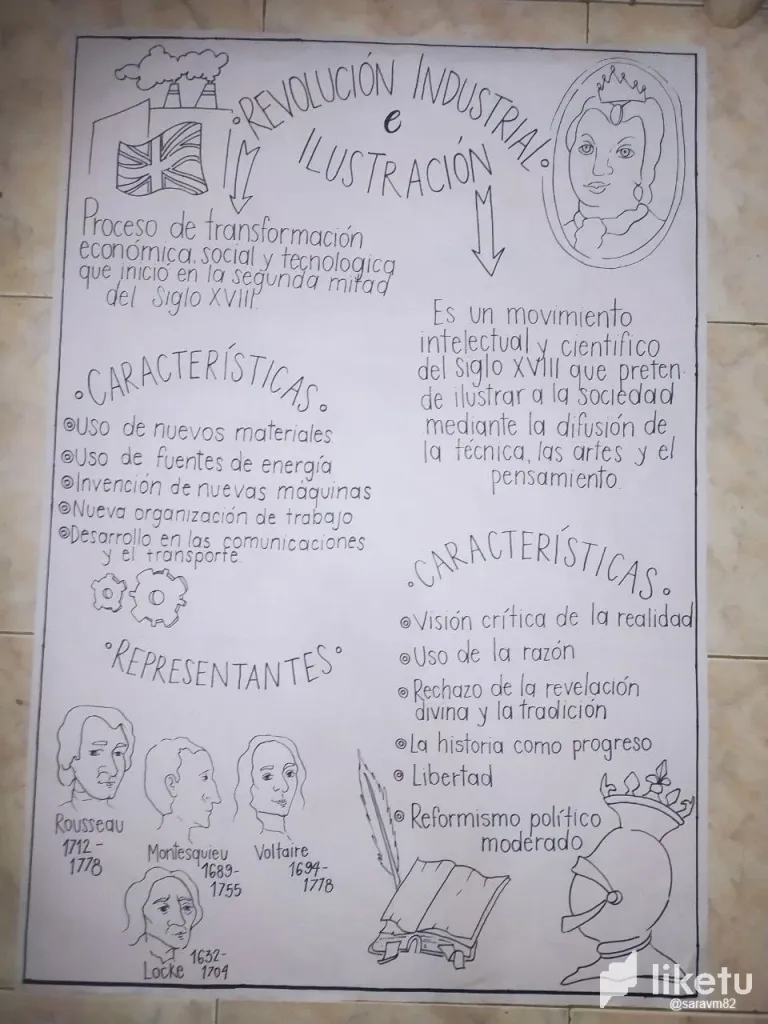 REVOLUCIÓN INDUSTRIAL
e
ILUSTRACIÓN
Proceso de transformación
económica, social y tecnologica
que inició en la segunda mitad
del Siglo XVIII.
CARACTERÍSTICAS
Uso de nuevos materiales
Uso de fuentes de energía
Invención de nuevas máquinas
Nueva organización de trabajo
Desarrollo en las comunicaciones
y el transporte.
REPRESENTANTES
Rousseau
1712-
1778
Montesquieu
1689-
1755
Voltaire
1694-
1778
Locke
1632-
1704
Es un movimiento
intelectual y científico
del Siglo XVIII que preten-
de ilustrar a la sociedad
mediante la difusión de
la técnica, las artes y el
pensamiento.
CARACTERÍSTICAS
Visión crítica de la realidad
Uso de la razón
Rechazo de la revelación
divina y la tradición
La historia como progreso
Libertad
Reformismo político
moderado
liketu
@saravm82